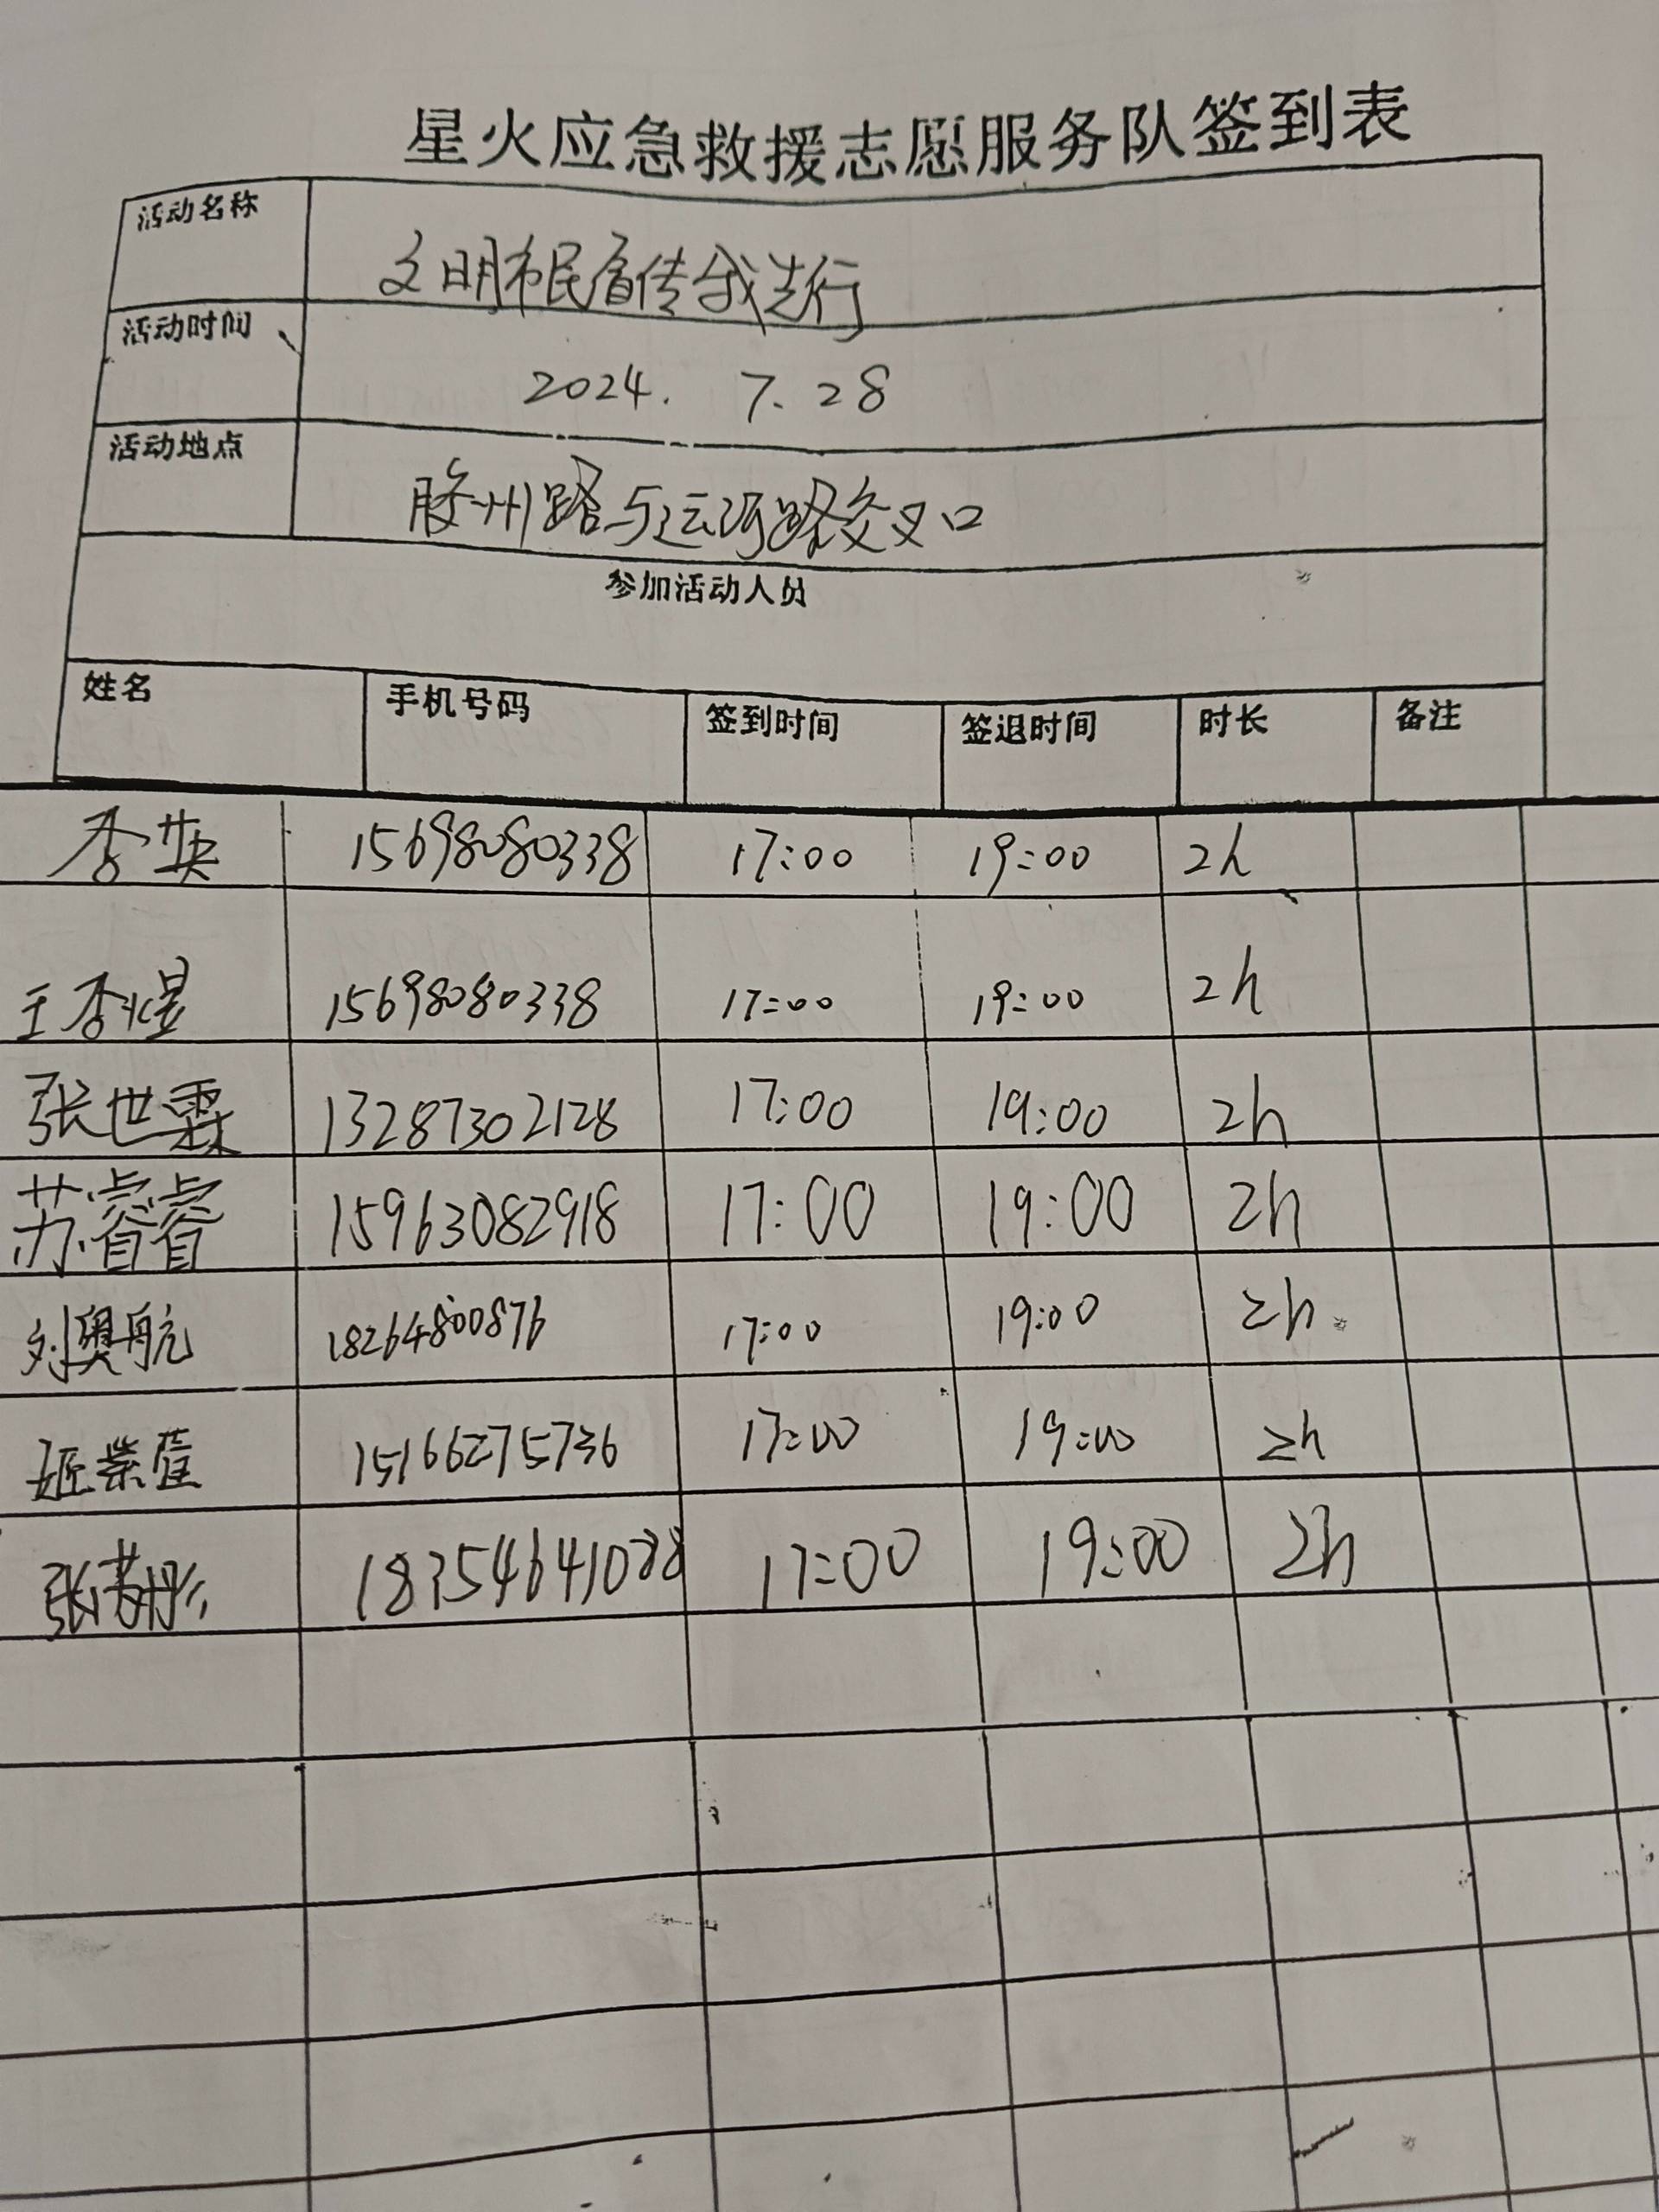 星火应急救援志愿服务队签到表
活动名称 文明市民宣传我先行
活动时间 2024. 7. 28
活动地点 胶州路与运河路交叉口
参加活动人员
姓名 手机号码 签到时间 签退时间 时长 备注
李英 15698080338 17:00 19:00 2h
王李煜 15698080338 17:00 19:00 2h
张世霖 13287302128 17:00 19:00 2h
苏睿睿 15963082918 17:00 19:00 2h
刘奥航 18264800876 17:00 19:00 2h.
姬紫萱 15166275736 17:00 19:00 2h
张 17:00 19:00 2h